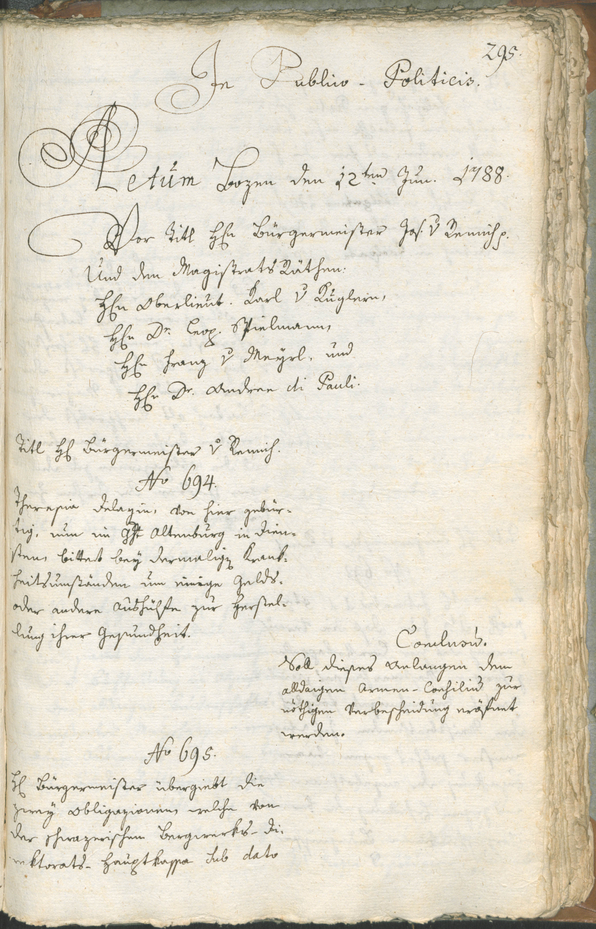 295.
In Publico-Politicis.
Actum Bozen den 12ten Jun. 1788.
Vor Titl Hhn Bürgermeister Jos. v Remich p.
Und den MagistratsRäthen:
Hhn Oberlieut. Karl v Kuglern,
Hhn Dr. Leop. Spielmann,
Hhn Franz v Meyrl, und
Hhn Dr. Andree di Pauli.
Titl Hh Bürgermeister v Remich.
No 694.
Theresia Delagin, von hier gebür-
tig, nun im Altenburg in Dien-
sten, bittet bey dermalig Krank-
heitsumständen um einige Gelds-
oder andere Aushülfe zur Herstel-
lung ihrer Gesundheit.
Conclusū.
Soll dieses Anlangen dem
alldaigen Armen-Consiliū zur
nöthigen Verbescheidung eröfnet
werden.
No 695.
Hh Bürgermeister übergiebt die
zwey Obligazionen, welche von
der schwazerischen Bergwerks-Di-
rektorats-Hauptkassa sub dato